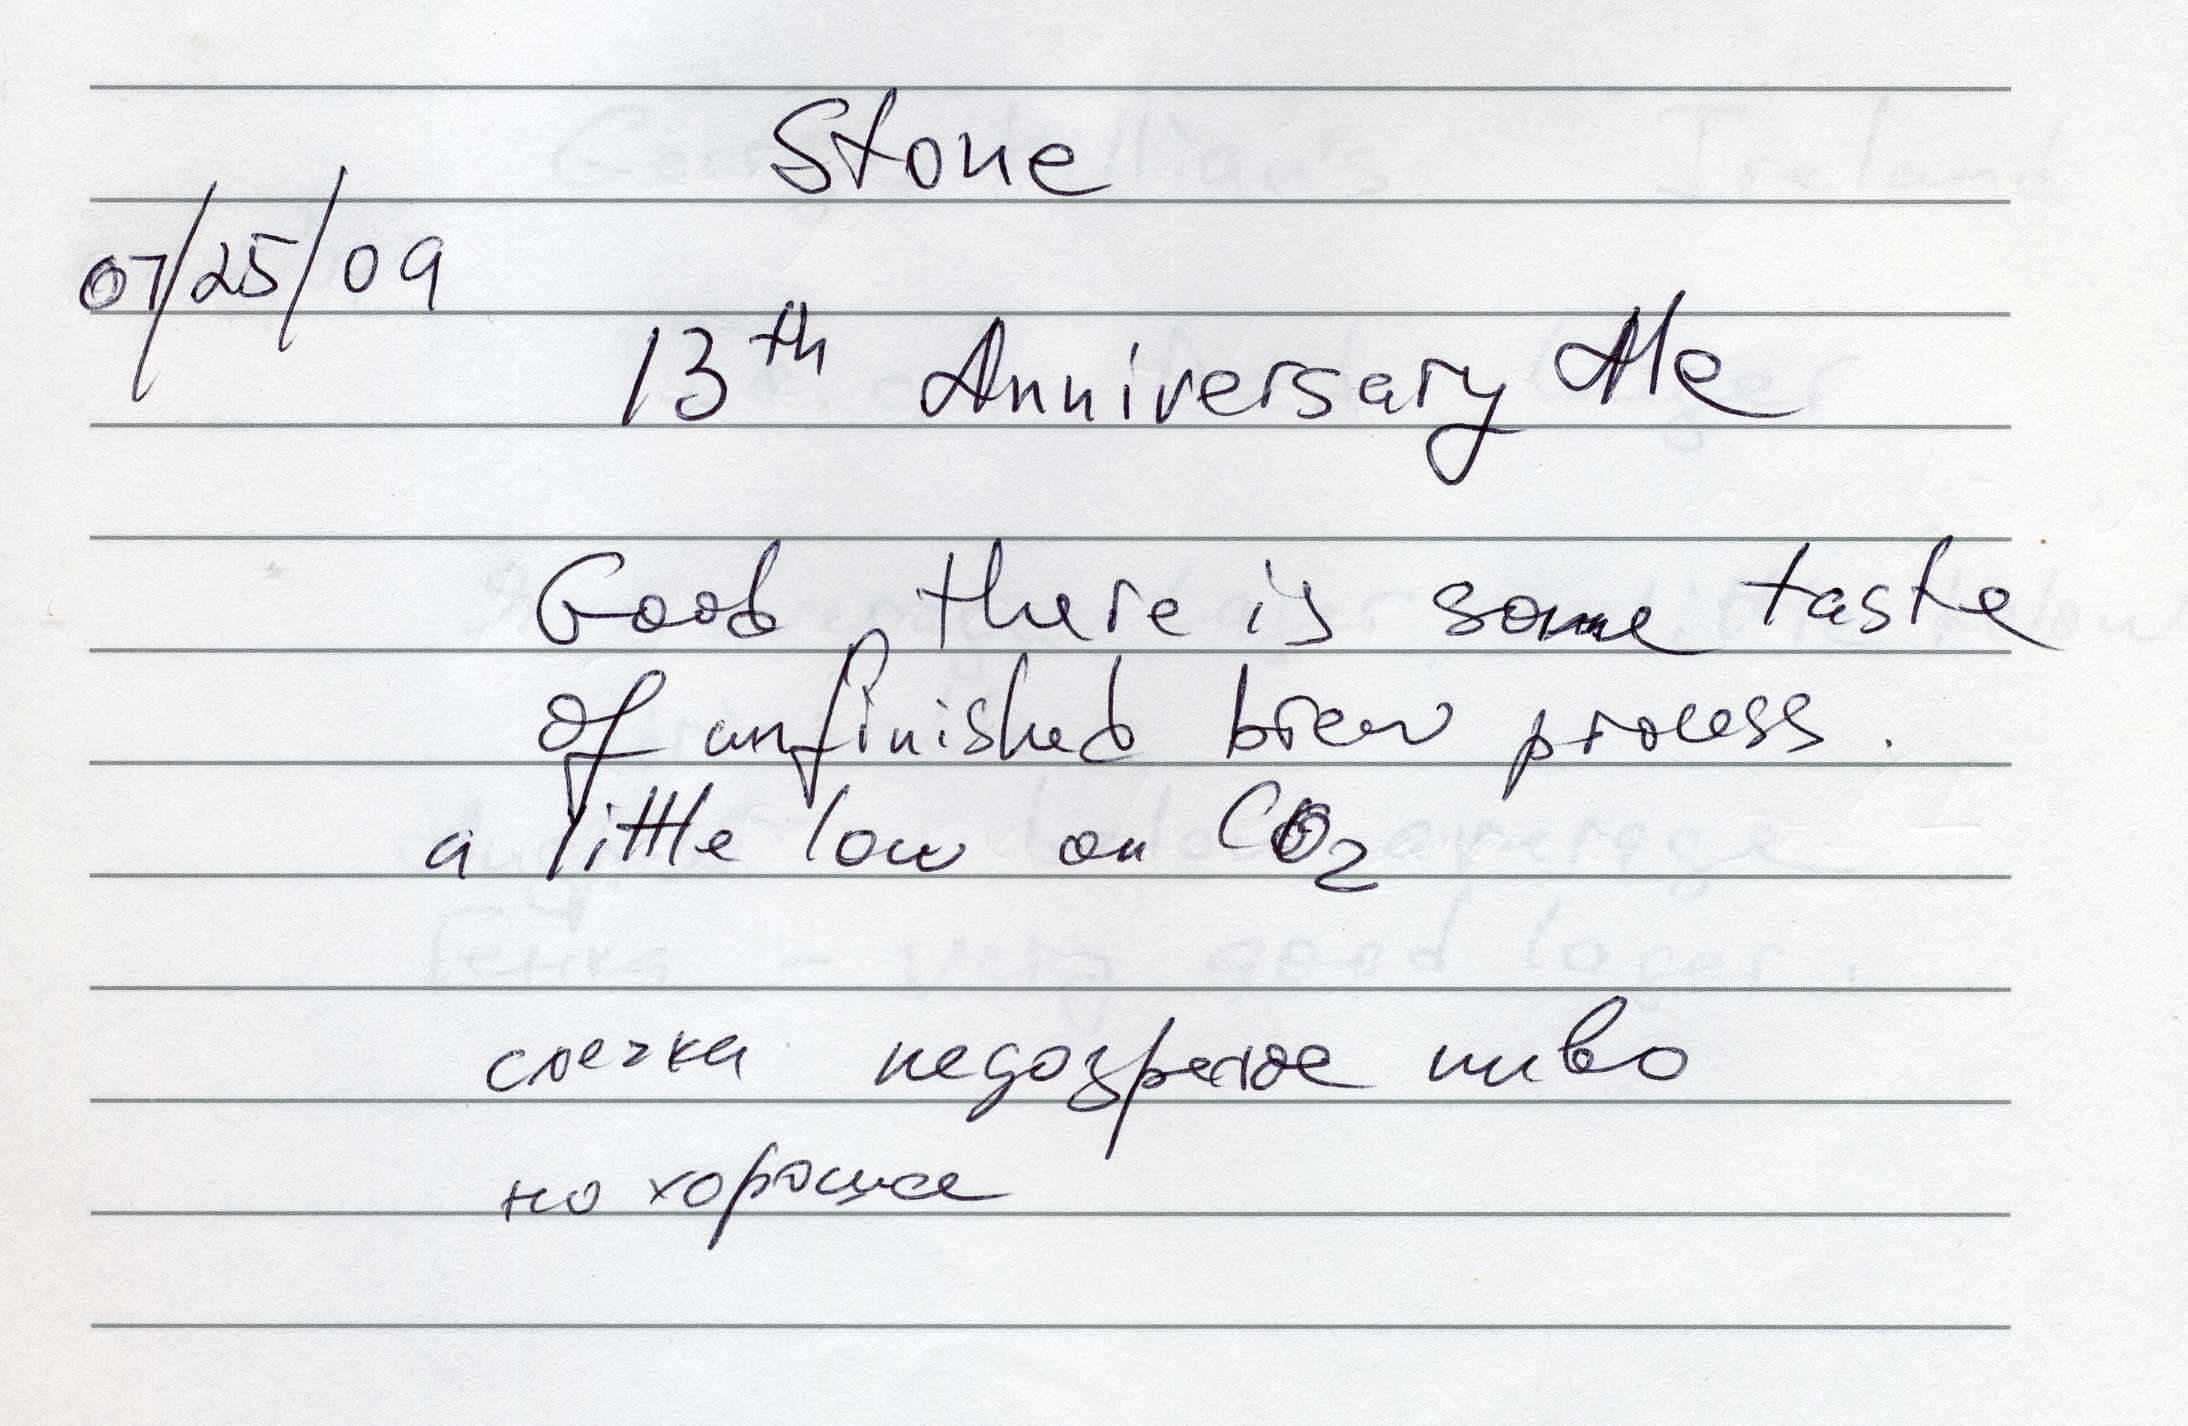 Stone
07/25/09
13th Anniversary Ale
Good, there is some taste
of unfinished brew process.
a little low on CO2
слегка недозрелое пиво
но хорошее